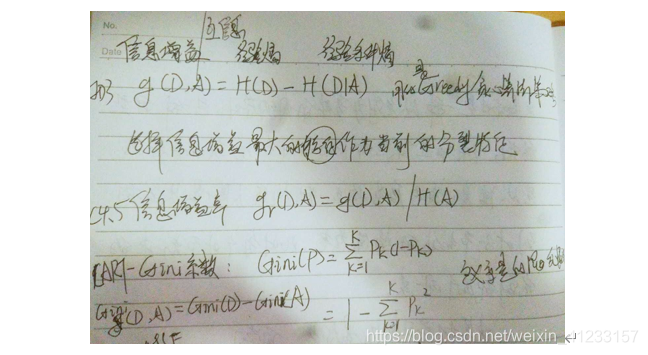 No.
互信息
Date
信息增益 经验熵 经验条件熵
ID3 g(D,A) = H(D) - H(D|A) Greedy
选择信息增益最大的特征作为当前的分裂特征
C4.5 信息增益率 gr(D,A) = g(D,A) / H(A)
CART-Gini系数: Gini(P) = ∑_{k=1}^{K} Pk(1-Pk)
Gini(D,A) = Gini(D) - Gini(A) = 1 - ∑_{k=1}^{K} Pk²
https://blog.csdn.net/weixin_41233157